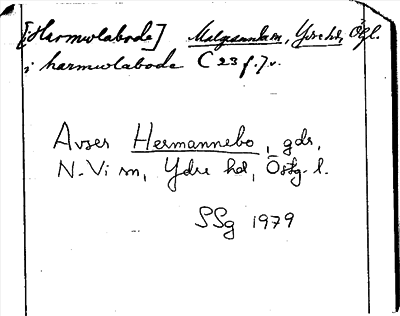 [Harmwlabode] Malgsannkem, Ydre hd, Ögl.
i harmwlabode C 23 f. 7 v.
Avser Hermannebo, gds,
N. Vi sn, Ydre hd, Östg. l.
SSg 1979